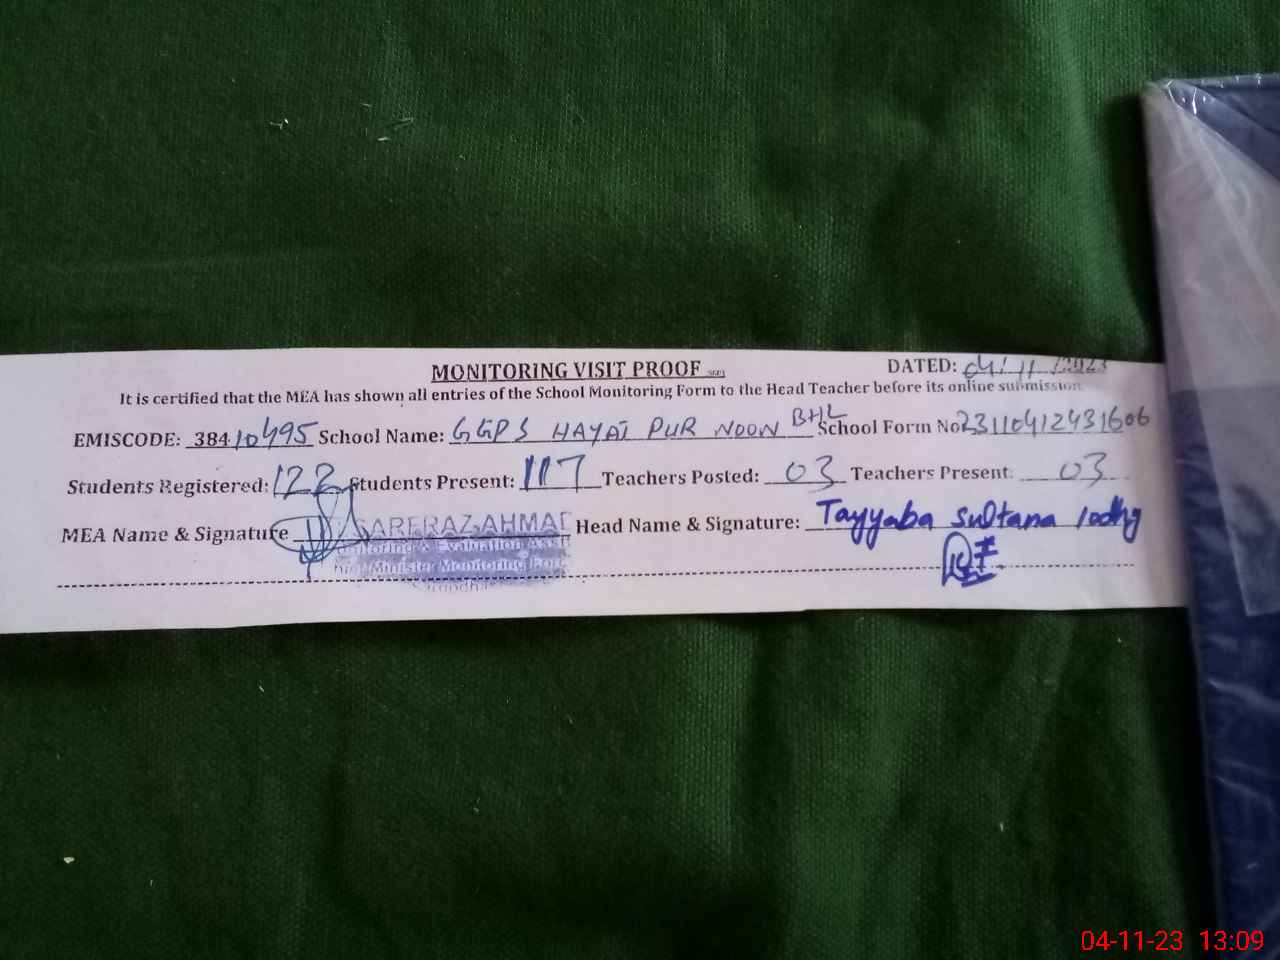 MONITORING VISIT PROOF
DATED: 04/11/2023
It is certified that the MEA has shown all entries of the School Monitoring Form to the Head Teacher before its online submission
EMISCODE: 38410495 School Name: GGPS HAYAT PUR NOON BHL School Form No 23110412431606
Students Registered: 122 Students Present: 117 Teachers Posted: 03 Teachers Present: 03
MEA Name & Signature SARFRAZ AHMAD Head Name & Signature: Tayyaba Sultana lodhy
Monitoring & Evaluation Assis
Chief Minister Monitoring Force
Sargodha
04-11-23 13:09